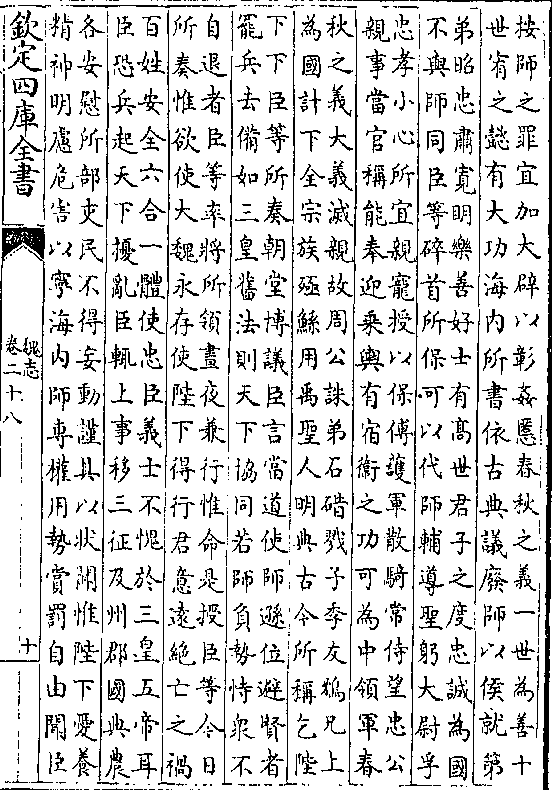 按師之罪宜加大辟以彰姦慝春秋之義一世為善十
世宥之懿有大功海内所書依古典議廢師以侯就第
弟昭忠肅寛明樂善好士有髙世君子之度忠誠為國
不與師同臣等碎首所保可以代師輔導聖躬大尉孚
忠孝小心所宜親寵授以保傅護軍散騎常侍望忠公
親事當官稱能奉迎乗輿有宿衛之功可為中領軍春
秋之義大義滅親故周公誅弟石碏戮子季友鴆兄上
為國計下全宗族殛鯀用禹聖人明典古今所稱乞陛
下下臣等所奏朝堂博議臣言當道使師遜位避賢者
罷兵去備如三皇舊法則天下協同若師負勢恃衆不
自退者臣等率將所領晝夜兼行惟命是授臣等今日
所奏惟欲使大魏永存使陛下得行君意遠絶亡之禍
百姓安全六合一體使忠臣義士不愧於三皇五帝耳
臣恐兵起天下擾亂臣輒上事移三征及州郡國典農
各安慰所部吏民不得妄動謹具以狀聞惟陛下愛養
精神明慮危害以寧海内師専權用勢賞罰自由聞臣
欽定四庫全書
魏志
卷二十八
十